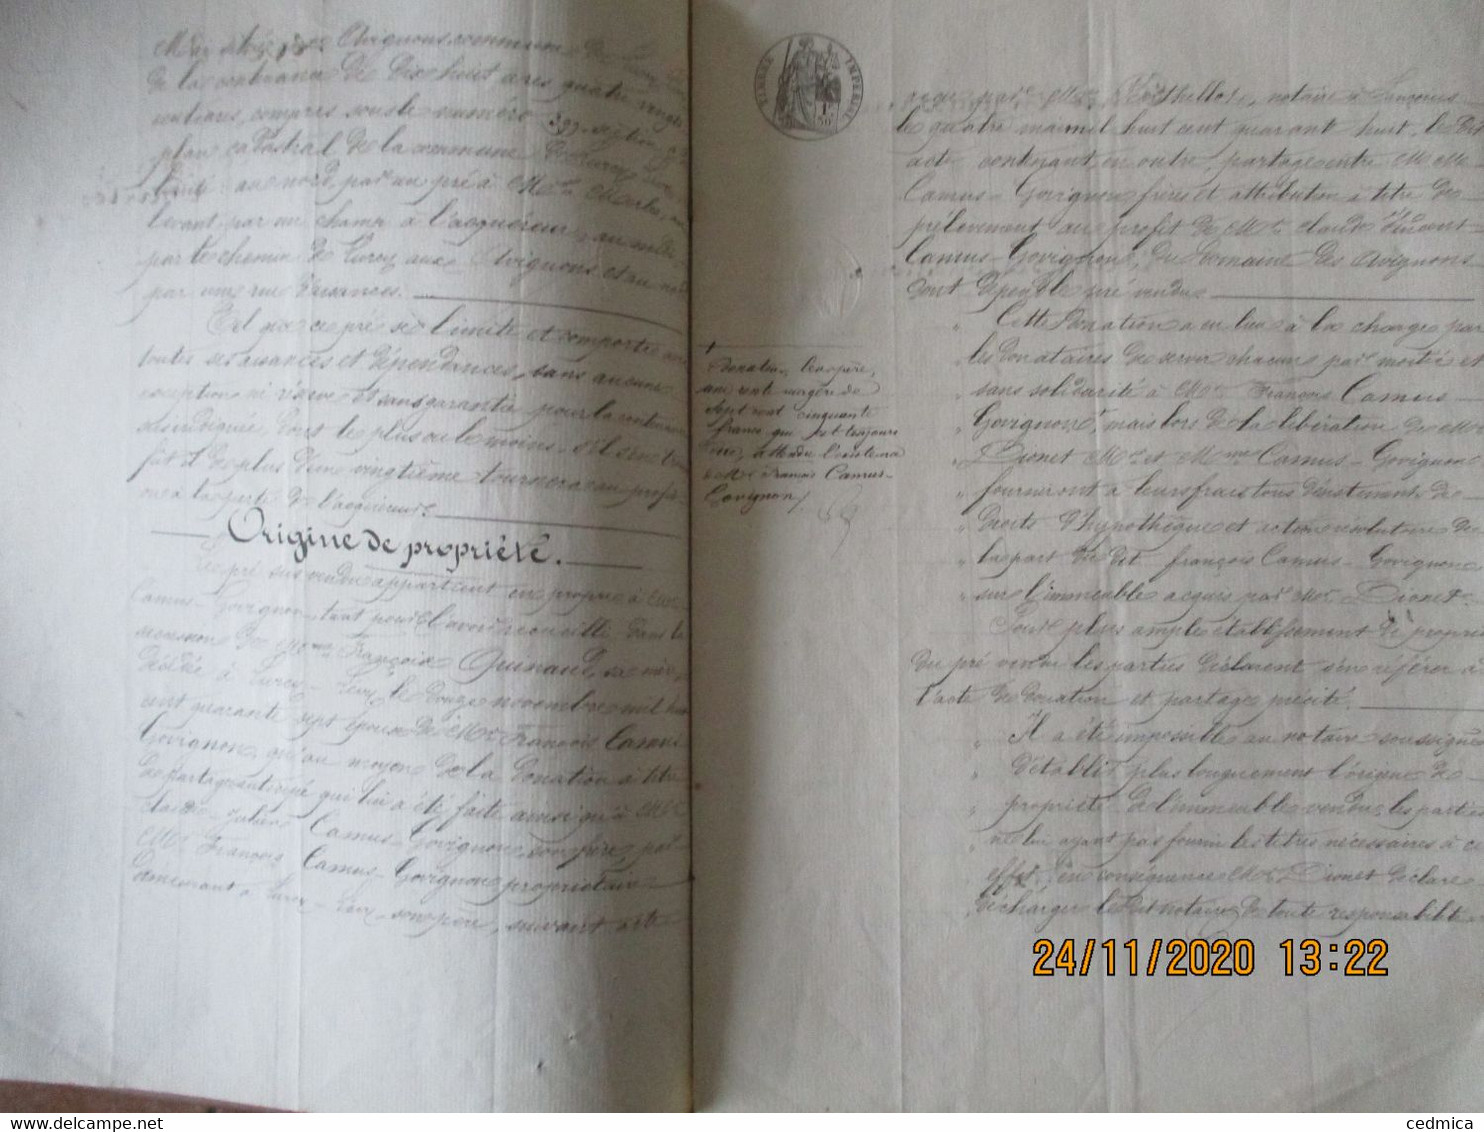 Avignons commune de Lurcy
de la contenance de dix huit ares quatre vingt
centiares, compris sous le numéro 399 section
plan cadastral de la commune de Lurcy
au nord, par un pré à
levant par un champ à l'acquéreur, au midi
par le chemin de Lurcy aux Avignons et au
par une rue d'aisances.
Tel que ce pré se limite et comporte
toutes ses aisances et dépendances, sans aucune
exception ni réserve et sans garantie pour la contenance
indiquée, dont le plus ou le moins, s'il s'en
fut il de plus d'un vingtième tournera au profit
ou à la perte de l'acquéreur.
Origine de propriété.
Le pré sus vendu appartient en propre à Mr
Camus-Govignon, tant pour l'avoir recueilli dans la
succession de Mme Françoise Quinaud, sa mère,
décédée à Lurcy-Lévy, le douze novembre mil huit
cent quarante sept épouse de Mr François Camus
Govignon, qu'au moyen de la donation à titre
de partage anticipé qui lui a été faite ainsi qu'à Mr
Camus-Govignon, son frère, par
Mr François Camus-Govignon propriétaire
demeurant à Lurcy-Lévy, son père, suivant acte
TIMBRE IMPERIAL
1F
50C
Donation, leur père,
une rente viagère de
sept cent cinquante
francs qui est toujours
due, attendu l'existence
de Mr François Camus-
Govignon
reçu par Me notaire à
le quatre mai mil huit cent quarante huit, le dit
acte contenant, en outre, partage entre MM
Camus-Govignon frères et attribution à titre de
prélèvement au profit de Mr Claude
Camus-Govignon, du Domaine des Avignons
dont dépend le pré vendu
Cette donation a eu lieu à la charge par
les donataires de servir chacun par moitié et
sans solidarité à Mr François Camus-
Govignon, mais lors de la libération de Mr
Dionet Mr et Mme Camus-Govignon
fourniront à leurs frais tous désistements de
droits d'hypothèque et action résolutoire de
la part du dit François Camus-Govignon
sur l'immeuble acquis par Mr Dionet.
Pour plus ample établissement de propriété
du pré vendu les parties déclarent s'en référer à
l'acte de donation et partage précité.
Il a été impossible au notaire soussigné
d'établir plus longuement l'origine de
propriété de l'immeuble vendu, les parties
ne lui ayant pas fourni les titres nécessaires à cet
effet, en conséquence Mr Dionet déclare
décharger le dit notaire de toute responsabilité
24/11/2020 13:22
delcampe.net
cedmica